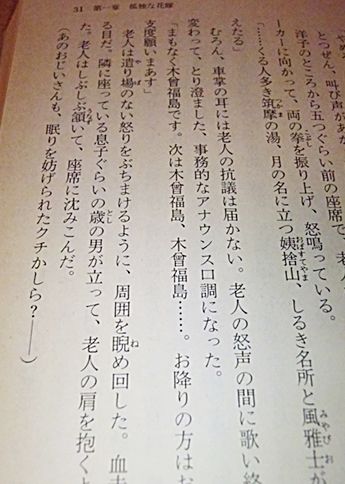 31 第一章 孤独な花嫁
とつぜん、叫び声があ
洋子のところから五つぐらい前の座席で、老人
ーカーに向かって、両の拳を振り上げ、怒鳴っている。
「……くる人多き筑摩の湯、月の名に立つ姨捨山、しるき名所と風雅士が
えたる」
むろん、車掌の耳には老人の抗議は届かない。老人の怒声の間に歌い終
変わって、とり澄ました、事務的なアナウンス口調になった。
「まもなく木曾福島です。次は木曾福島、木曾福島……。お降りの方はお
支度願いまあす」
老人は遣り場のない怒りをぶちまけるように、周囲を睨め回した。血走
る目だ。隣に座っている息子ぐらいの歳の男が立って、老人の肩を抱くと
た。老人はしぶしぶ頷いて、座席に沈みこんだ。
（あのおじいさんも、眠りを妨げられたクチかしら？――）